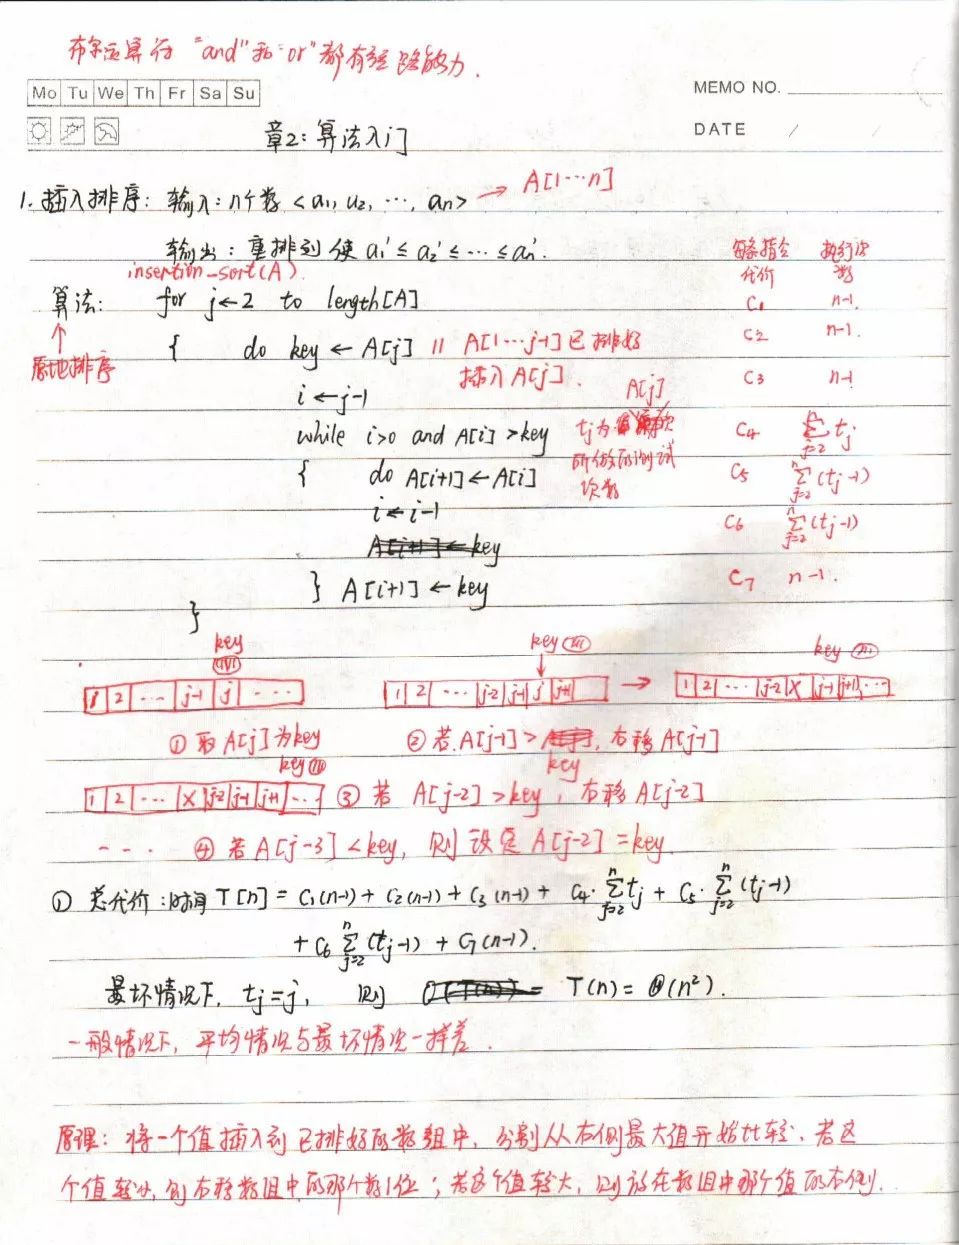 布尔运算符 "and" 和 "or" 都有短路能力.
Mo Tu We Th Fr Sa Su
MEMO NO.
DATE / /
章2: 算法入门
1. 插入排序: 输入: n个数 <a₁, a₂, ⋯, aₙ> → A[1⋯n]
输出: 重排列使 a₁' ≤ a₂' ≤ ⋯ ≤ aₙ'.
insertion-sort(A).
每条指令代价 执行次数
算法: for j←2 to length[A] C₁ n-1.
原地排序
{ do key ← A[j] // A[1⋯j-1]已排好 C₂ n-1.
插入A[j].
i ← j-1 C₃ n-1
while i>0 and A[i]>key C₄ ∑ⁿⱼ₌₂ tⱼ
A[j]
tⱼ为
所做的测试
次数
{ do A[i+1]←A[i] C₅ ∑ⁿⱼ₌₂ (tⱼ-1)
i ← i-1 C₆ ∑ⁿⱼ₌₂ (tⱼ-1)
A[i+1] ← key
} A[i+1] ← key C₇ n-1.
}
key key key
1 2 ⋯ j-1 j ⋯ 1 2 ⋯ j-2 j-1 j j+1 → 1 2 ⋯ j-2 X j-1 j+1 ⋯
① 取A[j]为key ② 若A[j-1]> key, 右移A[j-1]
key
1 2 ⋯ X j-2 j-1 j+1 ⋯ ③ 若 A[j-2]>key, 右移A[j-2]
⋯ ④ 若A[j-3]<key, 则设定A[j-2]=key.
① 总代价: 时间 T[n] = C₁(n-1) + C₂(n-1) + C₃(n-1) + C₄·∑ⁿⱼ₌₂ tⱼ + C₅·∑ⁿⱼ₌₂ (tⱼ-1)
+ C₆ ∑ⁿⱼ₌₂ (tⱼ-1) + C₇(n-1).
最坏情况下, tⱼ=j, 则 T(n) = Θ(n²).
一般情况下, 平均情况与最坏情况一样差.
原理: 将一个值插入到已排好的数组中, 分别从右侧最大值开始比较, 若这
个值较小, 则右移数组中的那个数1位; 若这个值较大, 则放在数组中那个值的右侧.